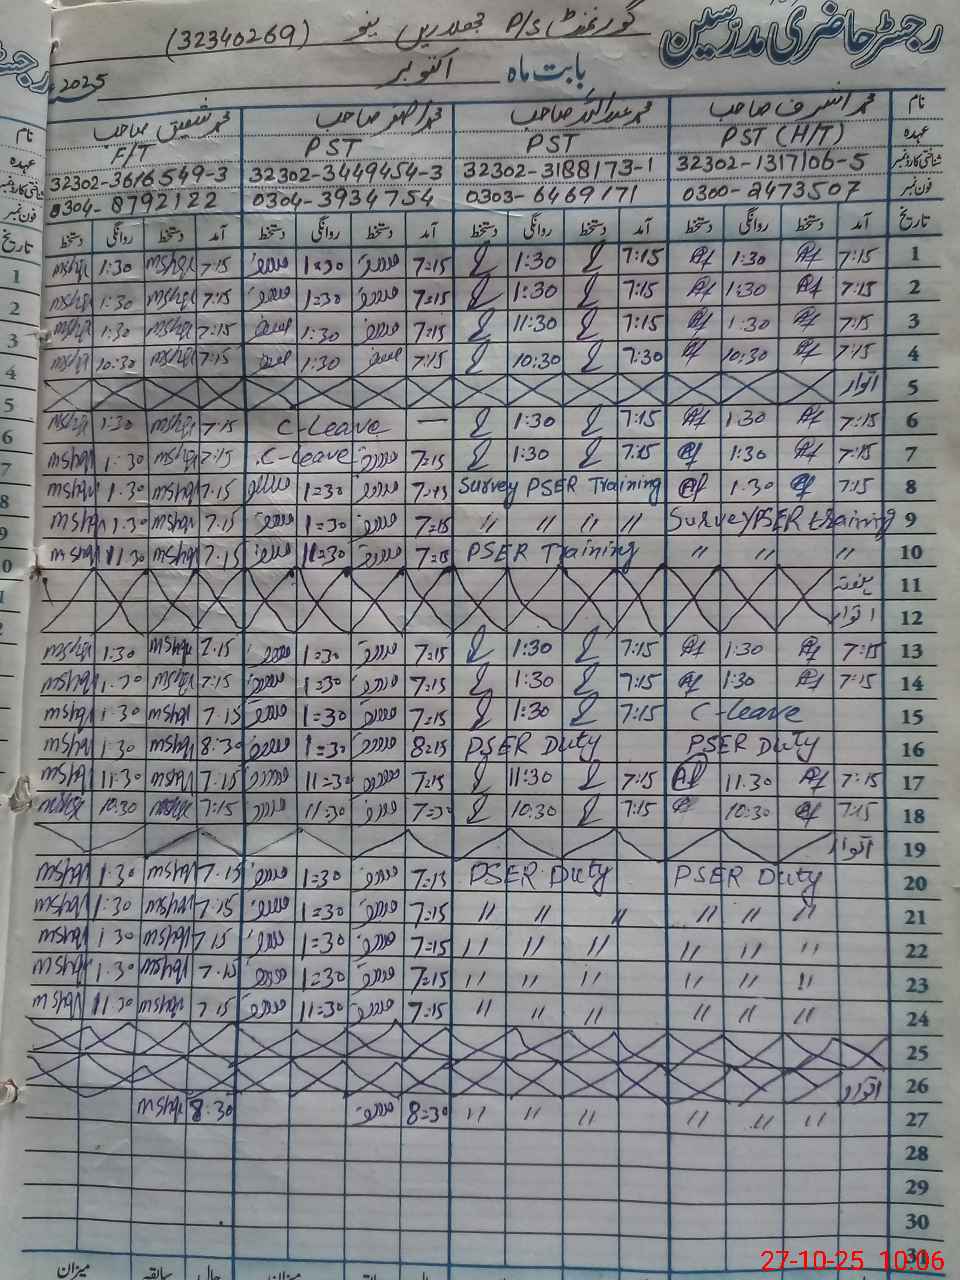 رجسٹر حاضری مدرسین گورنمنٹ P/S (32340269)
بابت ماہ اکتوبر 2025
نام محمد اشرف صاحب محمد عبداللہ صاحب محمد اظہر صاحب محمد شفیق صاحب
عہدہ PST (H/T) PST PST F/T
شناختی کارڈ نمبر 32302-1317106-5 32302-3188173-1 32302-3449454-3 32302-3616549-3
فون نمبر 0300-2473507 0303-6469171 0304-3934754 0304-8792122
تاریخ آمد دستخط روانگی دستخط آمد دستخط روانگی دستخط آمد دستخط روانگی دستخط آمد دستخط روانگی دستخط
1 7:15 Af 1:30 Af 7:15 1:30 7=15 1=30 7:15 mshgl 1:30 mshgl
2 7:15 Af 1:30 Af 7:15 1:30 7=15 1=30 7:15 mshgl 1:30 mshgl
3 7:15 Af 1:30 Af 7:15 11:30 7=15 1:30 7:15 mshgl 1:30 mshgl
4 7:15 Af 10:30 Af 7:30 10:30 7:15 1:30 7:15 mshgl 10:30 mshgl
5 اتوار
6 7:15 Af 1:30 Af 7:15 1:30 — C-Leave 7:15 mshgl 1:30 mshgl
7 7:15 Af 1:30 Af 7:15 1:30 7=15 C-Leave 7:15 mshgl 1:30 mshgl
8 7:15 Af 1:30 Af Survey PSER Training 7=15 1=30 7.15 mshgl 1.30 mshgl
9 Survey PSER training " " " " 7=15 1=30 7.15 mshgl 1.30 mshgl
10 " " " PSER Training 11=30 7.15 mshgl 11:30 mshgl
11 ہفتہ
12 اتوار
13 7:15 Af 1:30 Af 7:15 1:30 7=15 1=30 7.15 mshgl 1:30 mshgl
14 7:15 Af 1:30 Af 7:15 1:30 7=15 1=30 7:15 mshgl 1:30 mshgl
15 C-Leave 7:15 1:30 7=15 1=30 7.15 mshgl 1:30 mshgl
16 PSER Duty PSER Duty 8=15 1=30 8:30 mshgl 1:30 mshgl
17 7:15 Af 11.30 Af 7:15 11:30 7=15 11=30 7.15 mshgl 11:30 mshgl
18 7:15 Af 10:30 Af 7:15 10:30 7=30 11=30 7:15 mshgl 10:30 mshgl
19 اتوار
20 PSER Duty PSER Duty 7=15 1=30 7.15 mshgl 1:30 mshgl
21 " " " " " " 7=15 1=30 7.15 mshgl 1:30 mshgl
22 " " " " " " 7=15 1=30 7.15 mshgl 1:30 mshgl
23 " " " " " " 7=15 1=30 7.15 mshgl 1.30 mshgl
24 " " " " " " 7=15 11=30 7.15 mshgl 11:30 mshgl
25
26 اتوار
27 " " " " " " 8=30 8:30 mshgl
28
29
30
31
میزان سابقہ حال میزان
27-10-25 10:06